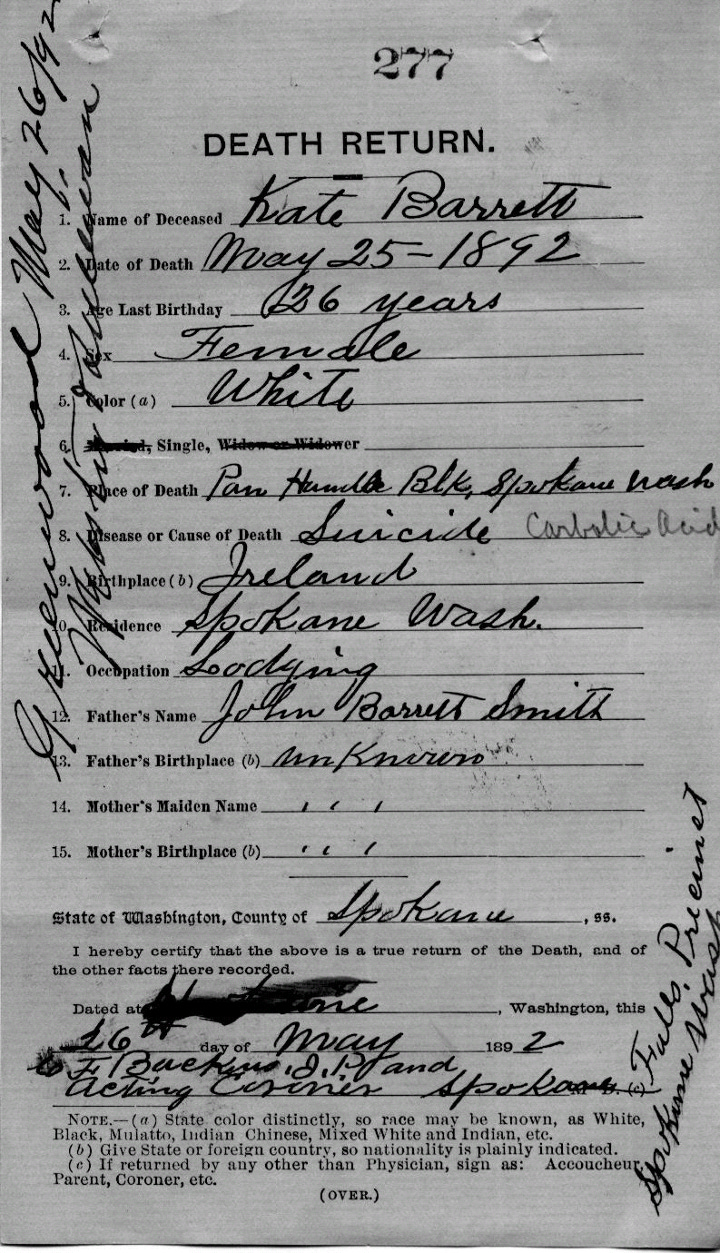 277
DEATH RETURN.
1. Name of Deceased Kate Barrett
2. Date of Death May 25-1892
3. Age Last Birthday 26 years
4. Sex Female
5. Color (a) White
6. Married, Single, Widow or Widower
7. Place of Death Pan Handle Blk, Spokane Wash
8. Disease or Cause of Death Suicide Carbolic Acid
9. Birthplace (b) Ireland
10. Residence Spokane Wash.
11. Occupation Lodging
12. Father's Name John Barrett Smith
13. Father's Birthplace (b) unKnown
14. Mother's Maiden Name " " "
15. Mother's Birthplace (b) " " "
State of Washington, County of Spokane, ss.
I hereby certify that the above is a true return of the Death, and of
the other facts there recorded.
Dated at , Washington, this
26th day of May 1892
F Backus. J.P. and
Acting Coroner Spokane (c)
Falls Precinct
Spokane Wash
NOTE.—(a) State color distinctly, so race may be known, as White,
Black, Mulatto, Indian Chinese, Mixed White and Indian, etc.
(b) Give State or foreign country, so nationality is plainly indicated.
(c) If returned by any other than Physician, sign as: Accoucheur,
Parent, Coroner, etc.
(OVER.)
Greenwood May 26/92